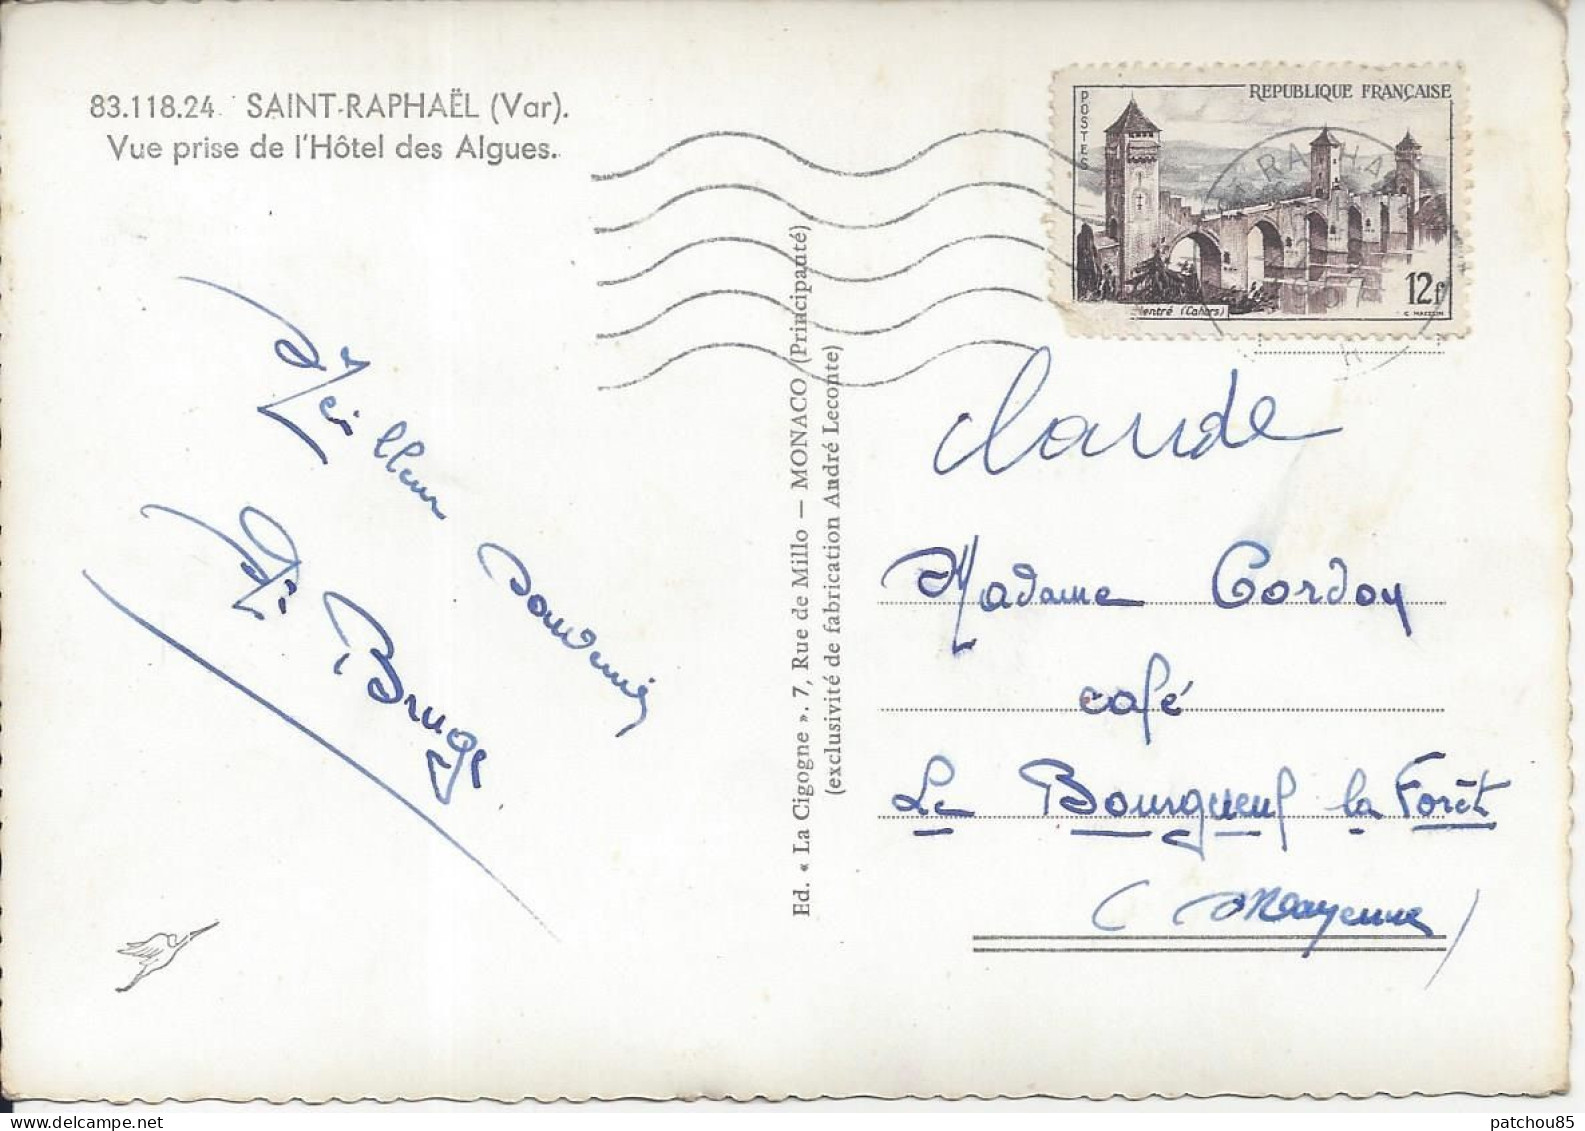 83.118.24. SAINT-RAPHAËL (Var).
Vue prise de l'Hôtel des Algues.
Meilleur souvenir
Bruge
Ed. « La Cigogne ». 7, Rue de Millo — MONACO (Principauté)
(exclusivité de fabrication André Leconte)
POSTES
REPUBLIQUE FRANÇAISE
12f
Valentré (Cahors)
ST RAPHA
1957
Claude
Madame Cordoy
café
Le Bourgneuf la Forêt
(Mayenne)
patchou85